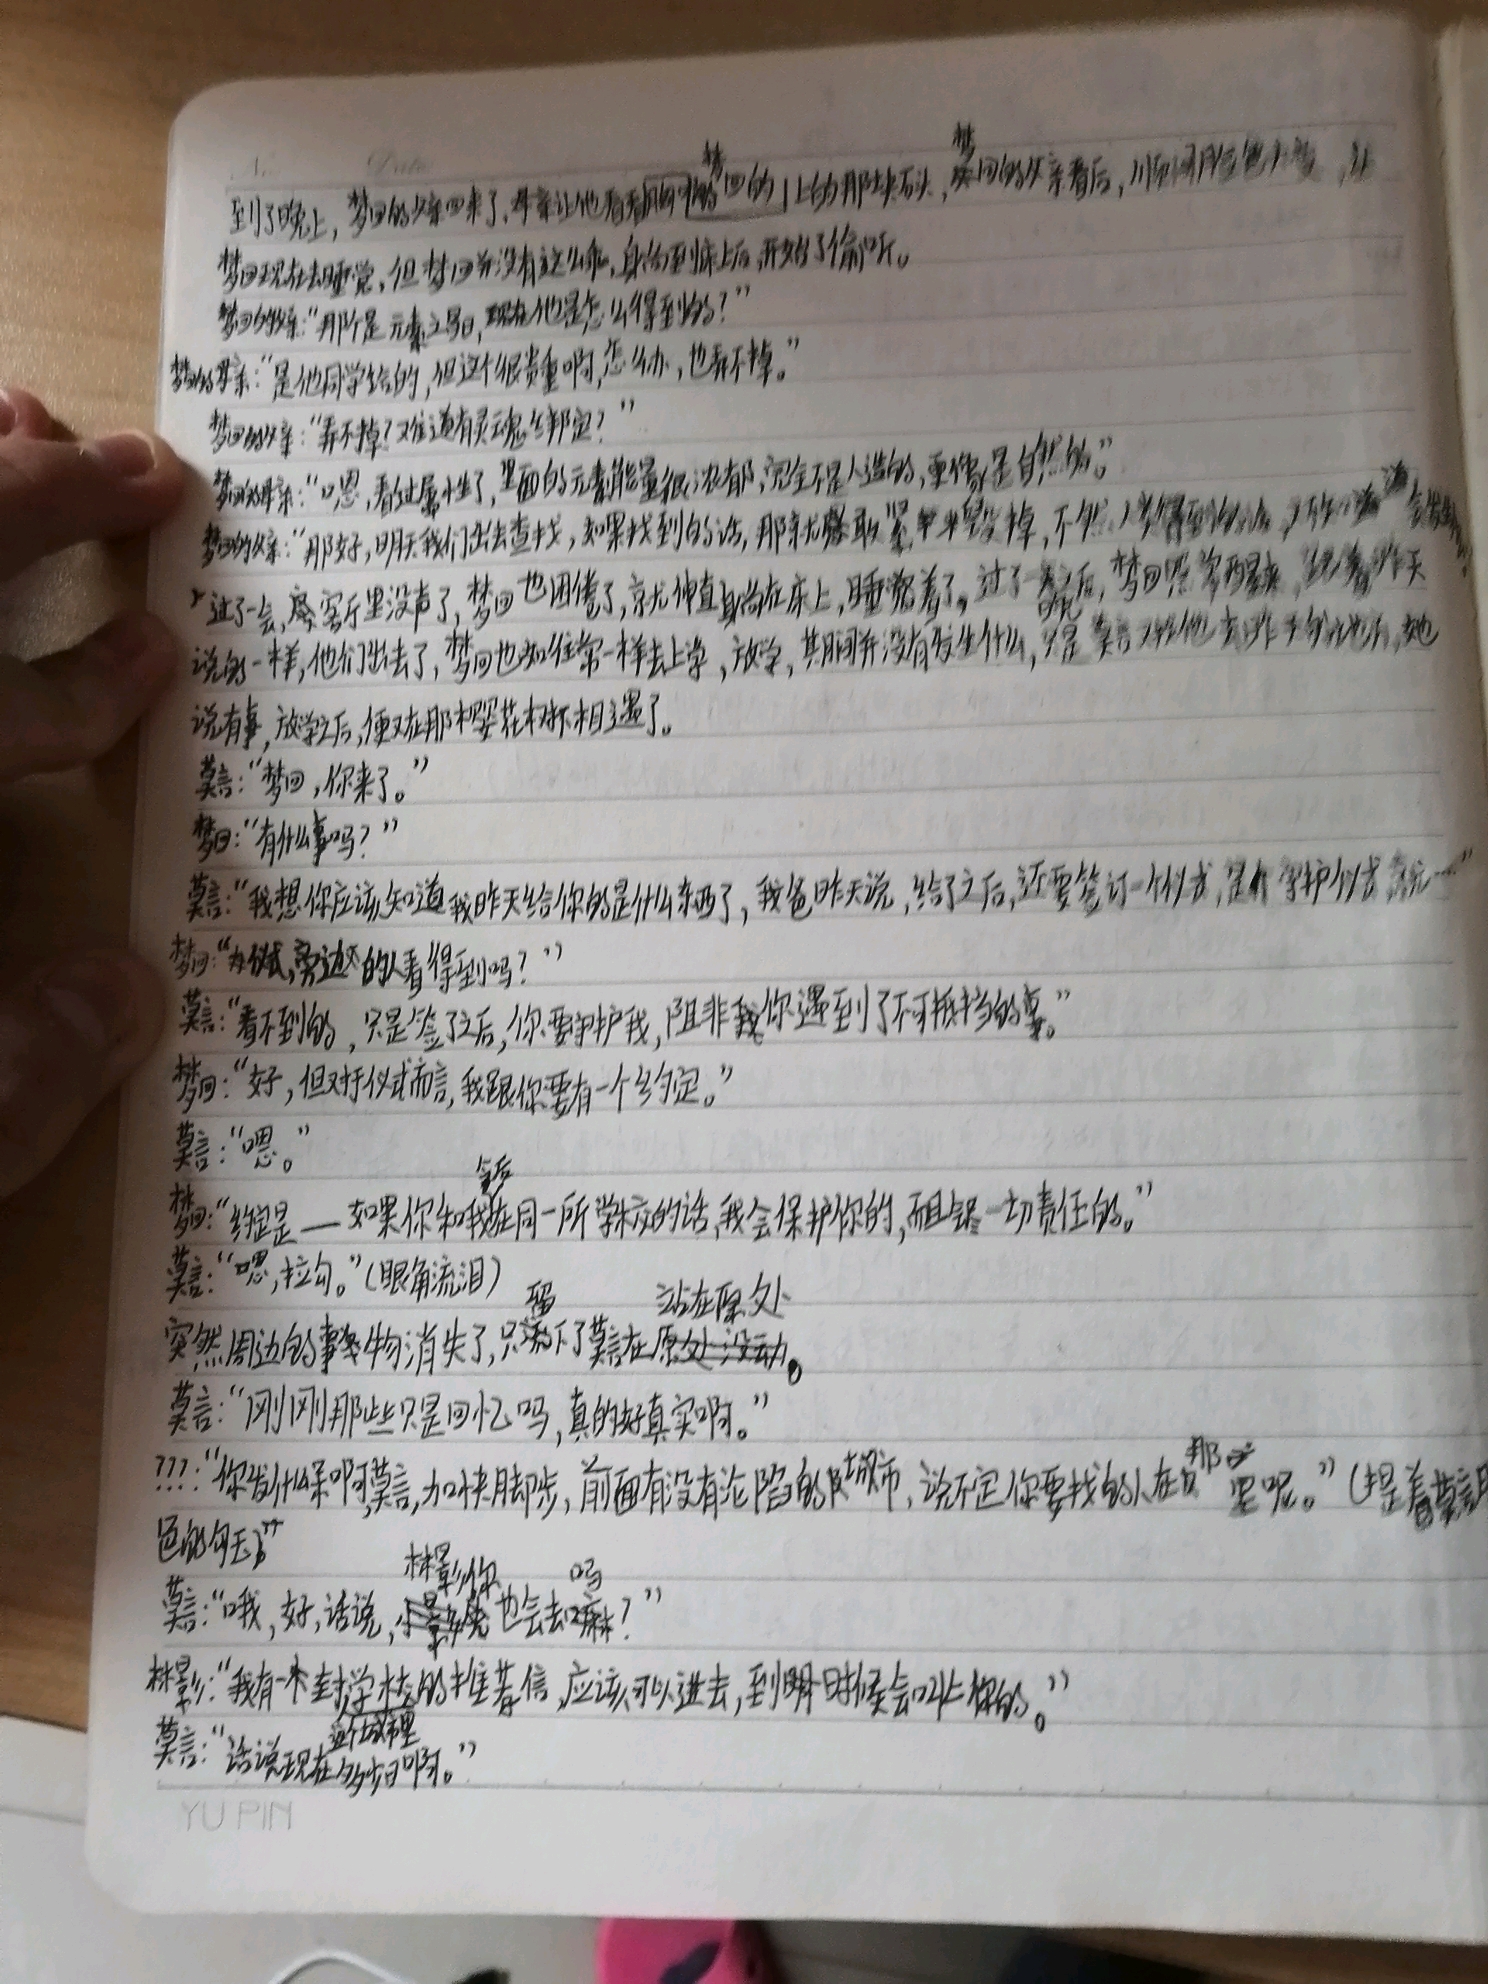 到了晚上，梦回的父亲回来了，母亲让他看看梦回的上的那块石头，梦回的父亲看后，
梦回现在去睡觉，但梦回并没有这么乖，身台到床上后，开始了偷听。
梦回的父亲：“那个是元素之，现在他是怎么得到的？”
梦回的母亲：“是他同学给的，但这个很贵重啊，怎么办，也弄不掉。”
梦回的父亲：“弄不掉？难道有灵魂绑定？”
梦回的母亲：“嗯，看过属性了，里面的元素能量很浓郁，完全不是人造的，更像是自然的。”
梦回的父亲：“那好，明天我们出去查找，如果找到的话，那就毁掉，不然
过了一会，客厅里没声了，梦回也困倦了，就伸直身台在床上，睡着了。过了一晚后，梦回照常醒来，昨天
说的一样，他们出去了，梦回也如往常一样去上学，放学，其间并没有发生什么，只是莫言他去昨天她
说有事，放学之后，便又在那樱花树下相遇了。
莫言：“梦回，你来了。”
梦回：“有什么事吗？”
莫言：“我想你应该知道我昨天给你的是什么东西了，我爸昨天说，给了之后，还要签订一个仪式，是个守护仪式
梦回：“仪式，旁边的人看得到吗？”
莫言：“看不到的，只是签了之后，你要守护我，阻非你遇到了不可抵挡的事。”
梦回：“好，但对于仪式而言，我跟你要有一个约定。”
莫言：“嗯。”
梦回：“约定是——如果你和我今后在同一所学校的话，我会保护你的，而且一切责任的。”
莫言：“嗯，拉勾。”（眼角流泪）
突然周边的事物消失了，只留下了莫言在站在原处。
莫言：“刚刚那些只是回忆吗，真的好真实啊。”
???：“你发什么呆啊莫言，加快脚步，前面有没有沦陷的城市，说不定你要找的人在那里呢。”（提着莫言
色的勾玉）
莫言：“哦，好，话说，林影你也会去吗？”
林影：“我有一封学校的推荐信，应该可以进去，到时候会叫上你的。”
莫言：“话说现在这个城市里多少日啊。”
YU PIN